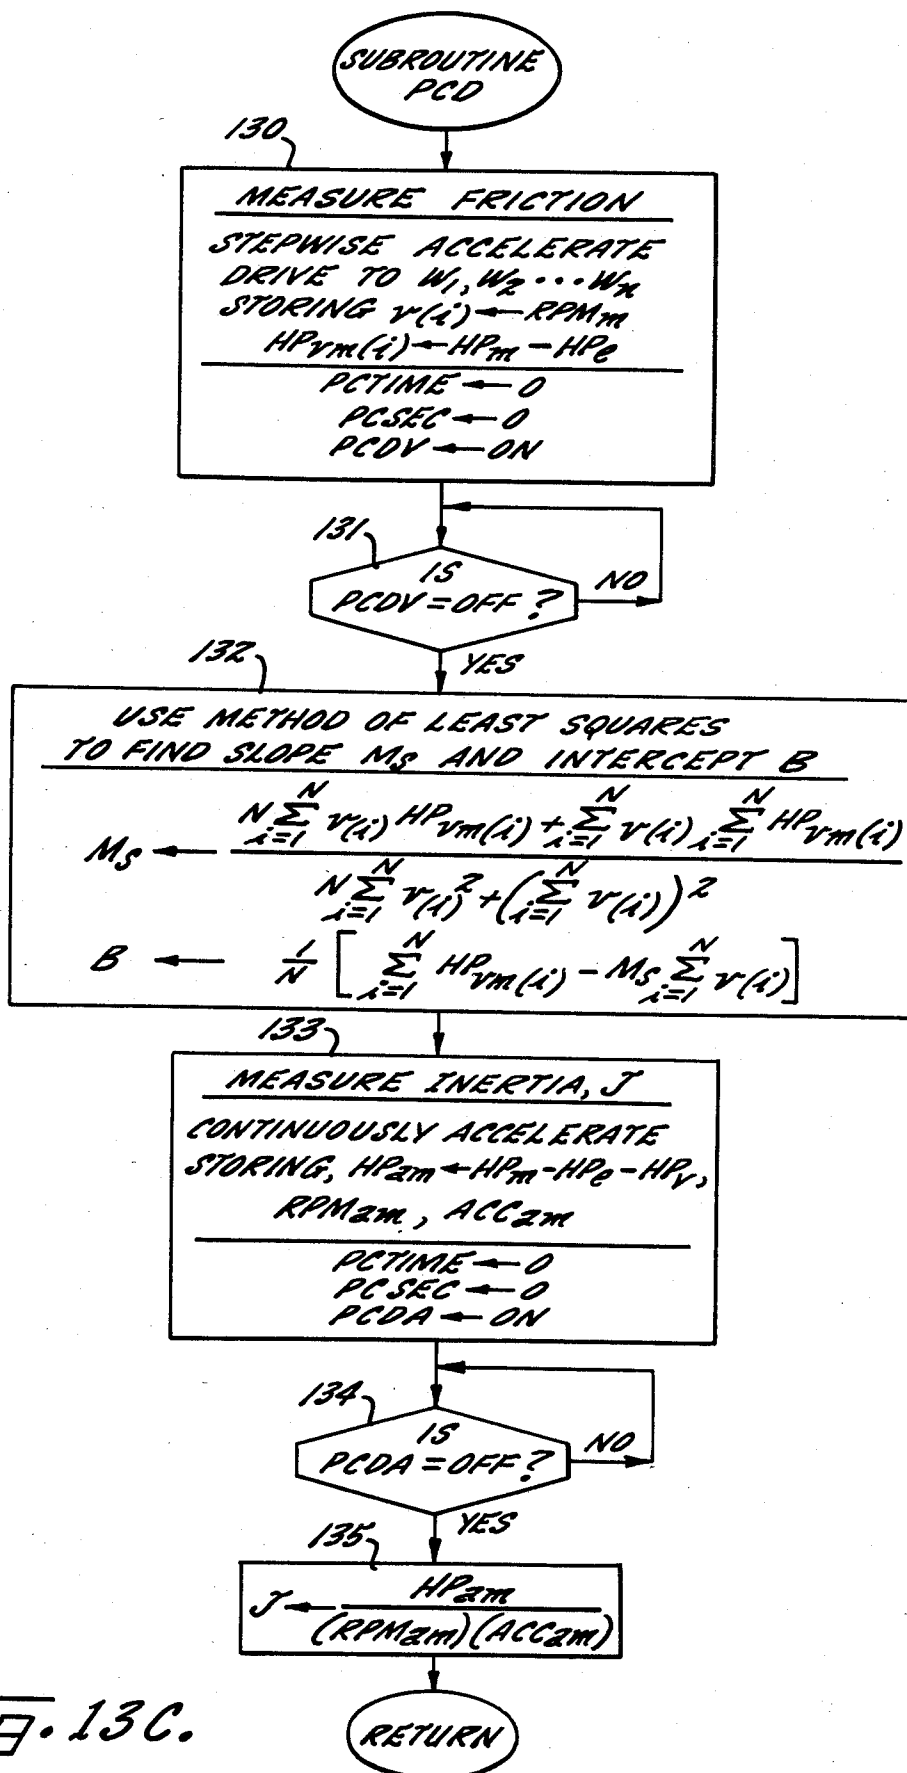 SUBROUTINE
PCD
130
MEASURE FRICTION
STEPWISE ACCELERATE
DRIVE TO W₁, W₂ ··· Wₙ
STORING v(i) ← RPMm
HPvm(i) ← HPm - HPe
PCTIME ← 0
PCSEC ← 0
PCDV ← ON
131
IS
PCDV = OFF ?
NO
YES
132
USE METHOD OF LEAST SQUARES
TO FIND SLOPE MS AND INTERCEPT B
MS ← (N ∑_{i=1}^{N} v(i) HPvm(i) + ∑_{i=1}^{N} v(i) ∑_{i=1}^{N} HPvm(i)) / (N ∑_{i=1}^{N} v(i)² + (∑_{i=1}^{N} v(i))²)
B ← 1/N [∑_{i=1}^{N} HPvm(i) - MS ∑_{i=1}^{N} v(i)]
133
MEASURE INERTIA, J
CONTINUOUSLY ACCELERATE
STORING, HPam ← HPm - HPe - HPv,
RPMam, ACCam
PCTIME ← 0
PCSEC ← 0
PCDA ← ON
134
IS
PCDA = OFF ?
NO
YES
135
J ← HPam / (RPMam)(ACCam)
RETURN
. 13C.